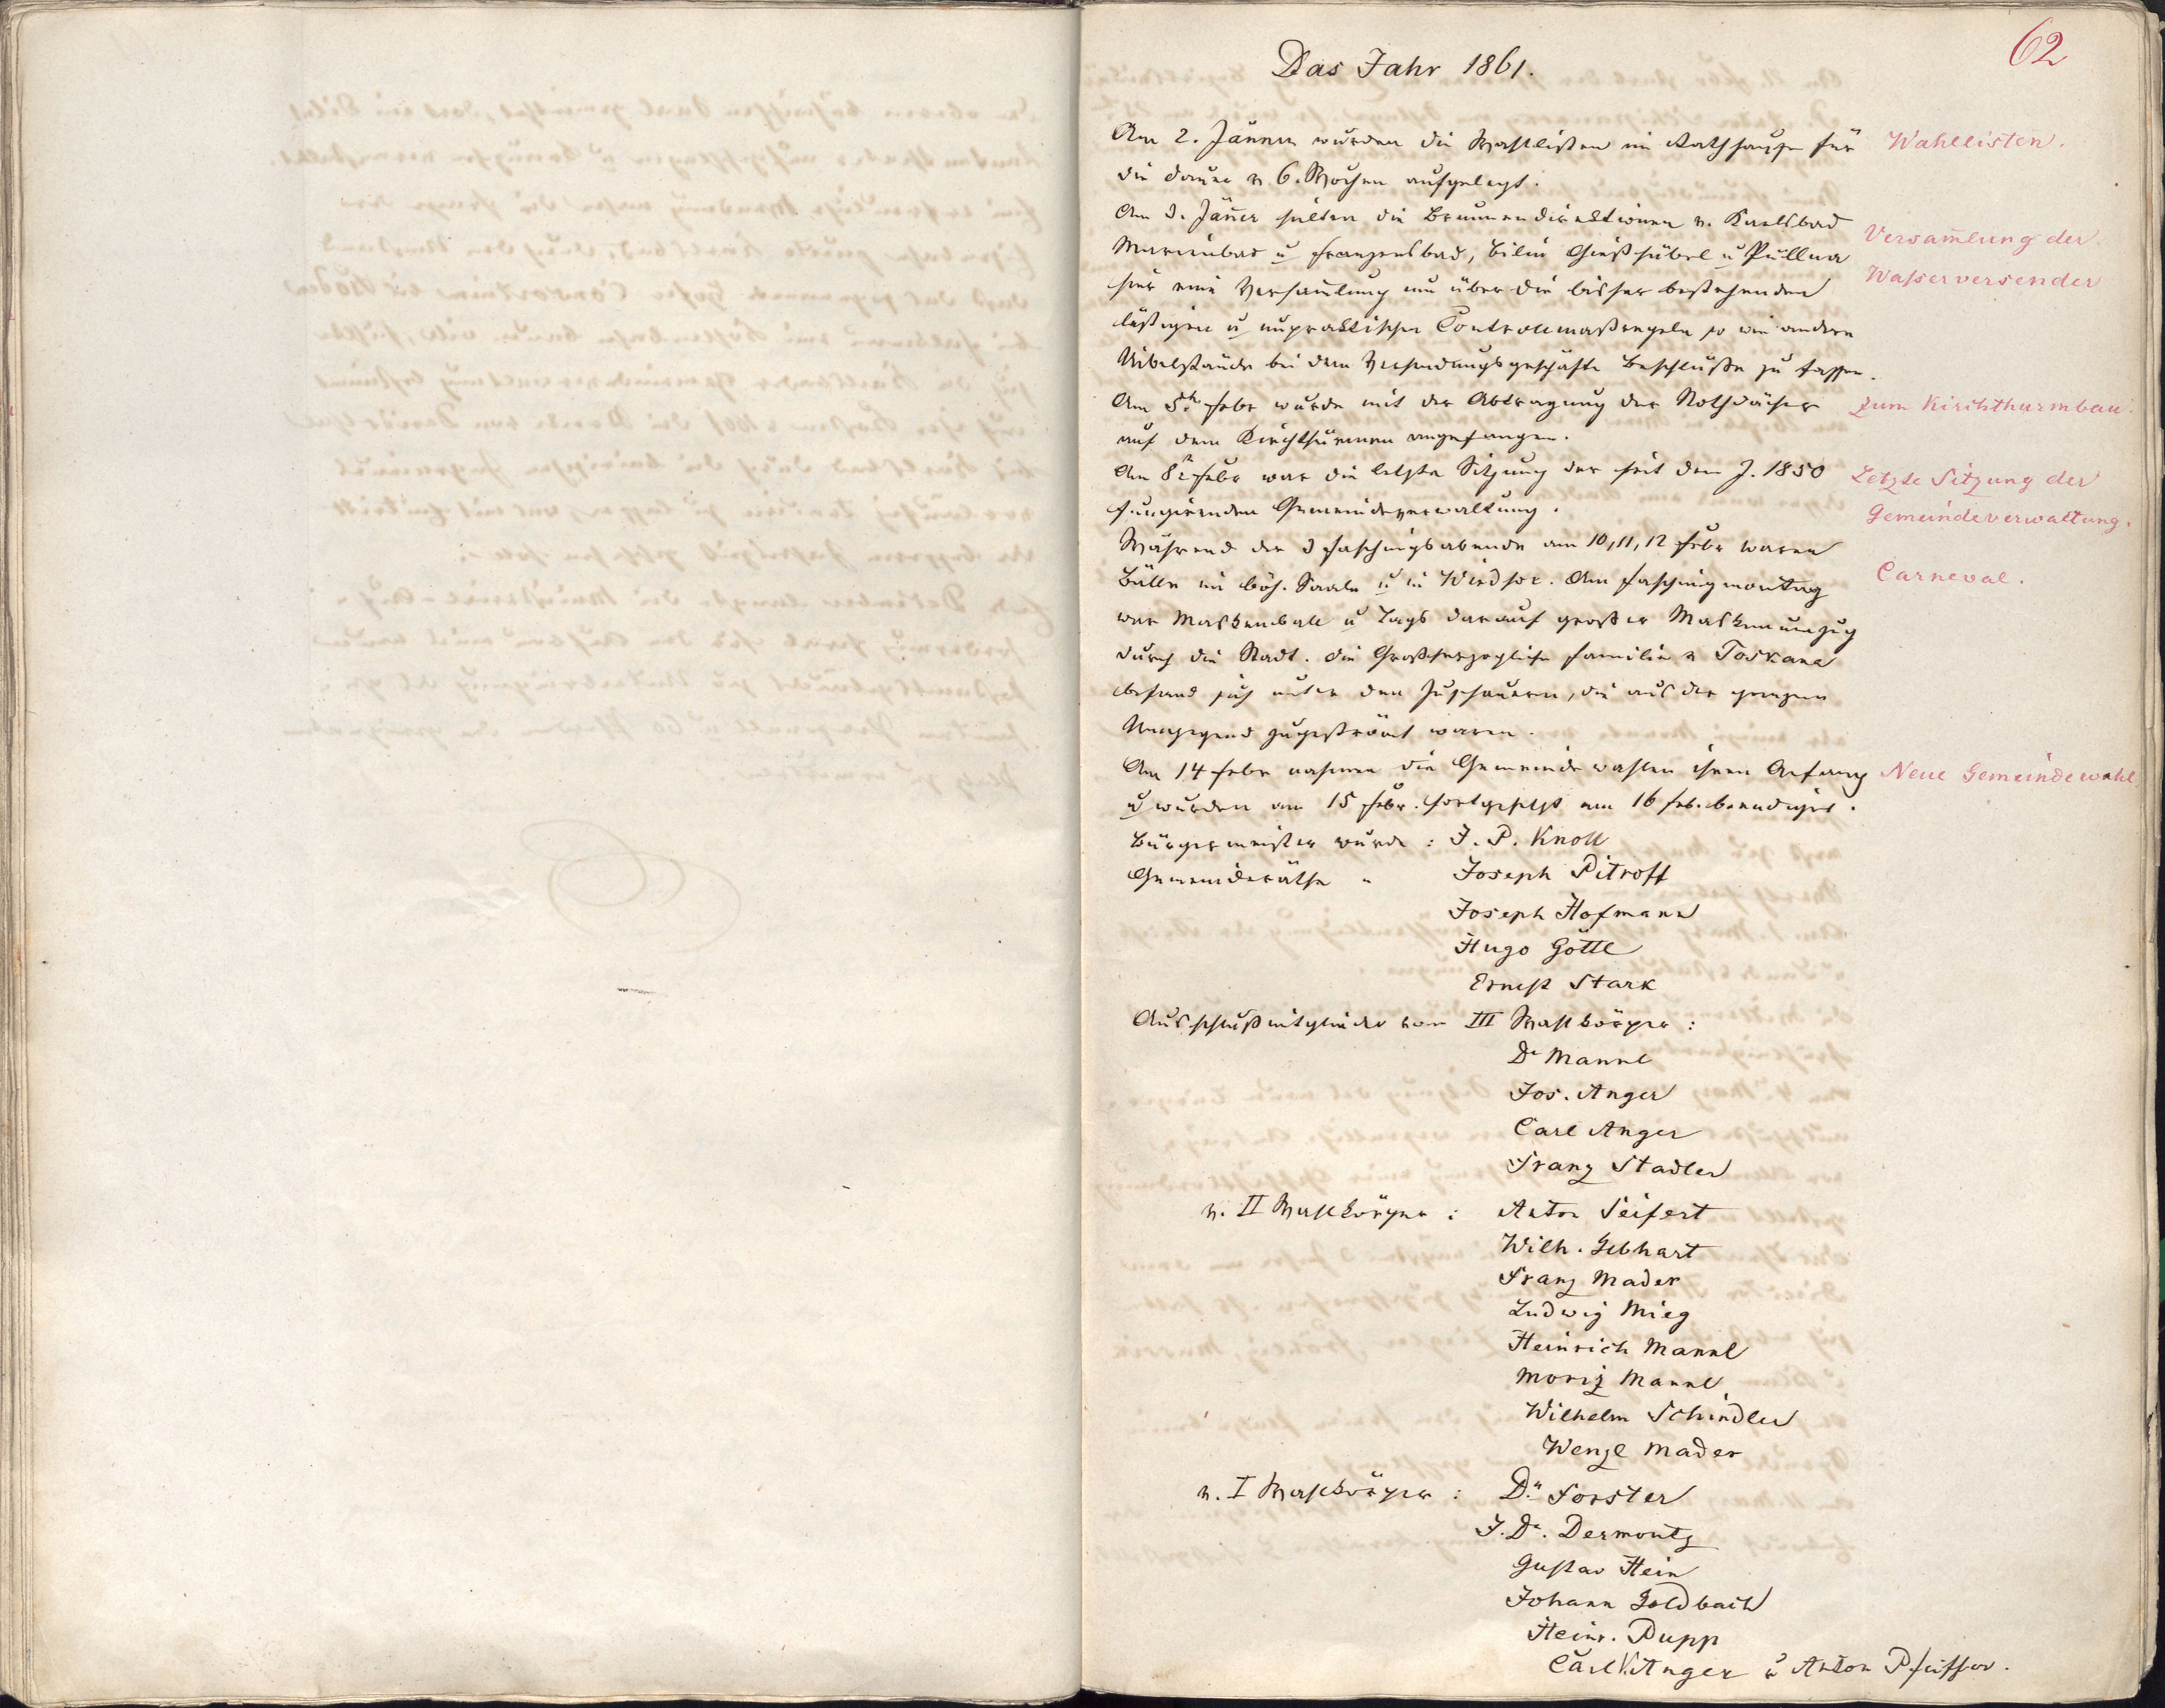 62
Das Jahr 1861.
Am 2. Jänner wurden die Wahllisten im Rathhause für
die Dauer v. 6. Wochen aufgelegt.
Wahllisten.
Am 3. Jäner hielten die Brunnendirektionen v. Karlsbad
Marienbad u Franzensbad, Bilin Gießhübel u Püllna
hier eine Versam̄lung um über die bisher bestehenden
läßtigen u unpraktischen Controllmaßregeln so wie andere
Uibelstände bei dem Versendungsgeschäfte Beschlüße zu fassen.
Versam̄lung der
Waßerversender
Am 5t. Febr wurde mit der Abtragung der Nothdächer
auf dem Kirchthürmen angefangen.
zum Kirchthurmbau.
Am 8t Febr war die letzte Sitzung der seit dem J. 1850
fungirenden Gemeindeverwaltung.
Letzte Sitzung der
Gemeindeverwaltung.
Während der 3 Faschingsabende am 10, 11, 12 Febr waren
Bälle im böh. Saale u in Windsor. Am Faschingmontag
war Maskenball u Tags darauf großer Maskenumzug
durch die Stadt. Die Großherzogliche Familie v Toskana
befand sich unter den Zuschauern, die aus der ganzen
Umgegend zugeströmt waren.
Carneval.
Am 14 Febr nahmen die Gemeindewahlen ihren Anfang
u wurden am 15 Febr. fortgesetzt am 16 Feb. beendiget.
Neue Gemeindewahl
Bürgermeister wurde : J. P. Knoll
Gemeinderäthe " Joseph Pitroff
Joseph Hofmann
Hugo Göttl
Ernest Stark
Ausschußmitglieder vom III Wahlkörper :
Dr Mannl
Jos. Anger
Carl Anger
Franz Stadler
v. II Wahlkörper : Anton Seifert
Wilh. Gebhart
Franz Mader
Ludwig Mieg
Heinrich Mannl
Moriz Mannl
Wilhelm Schindler
Wenzl Mader
v. I Wahlkörper : Dr. Forster
J. Dr. Dermoutz
Gustav Hein
Johann Goldbach
Heinr. Pupp
Carl Anger u Anton Pfeiffer.